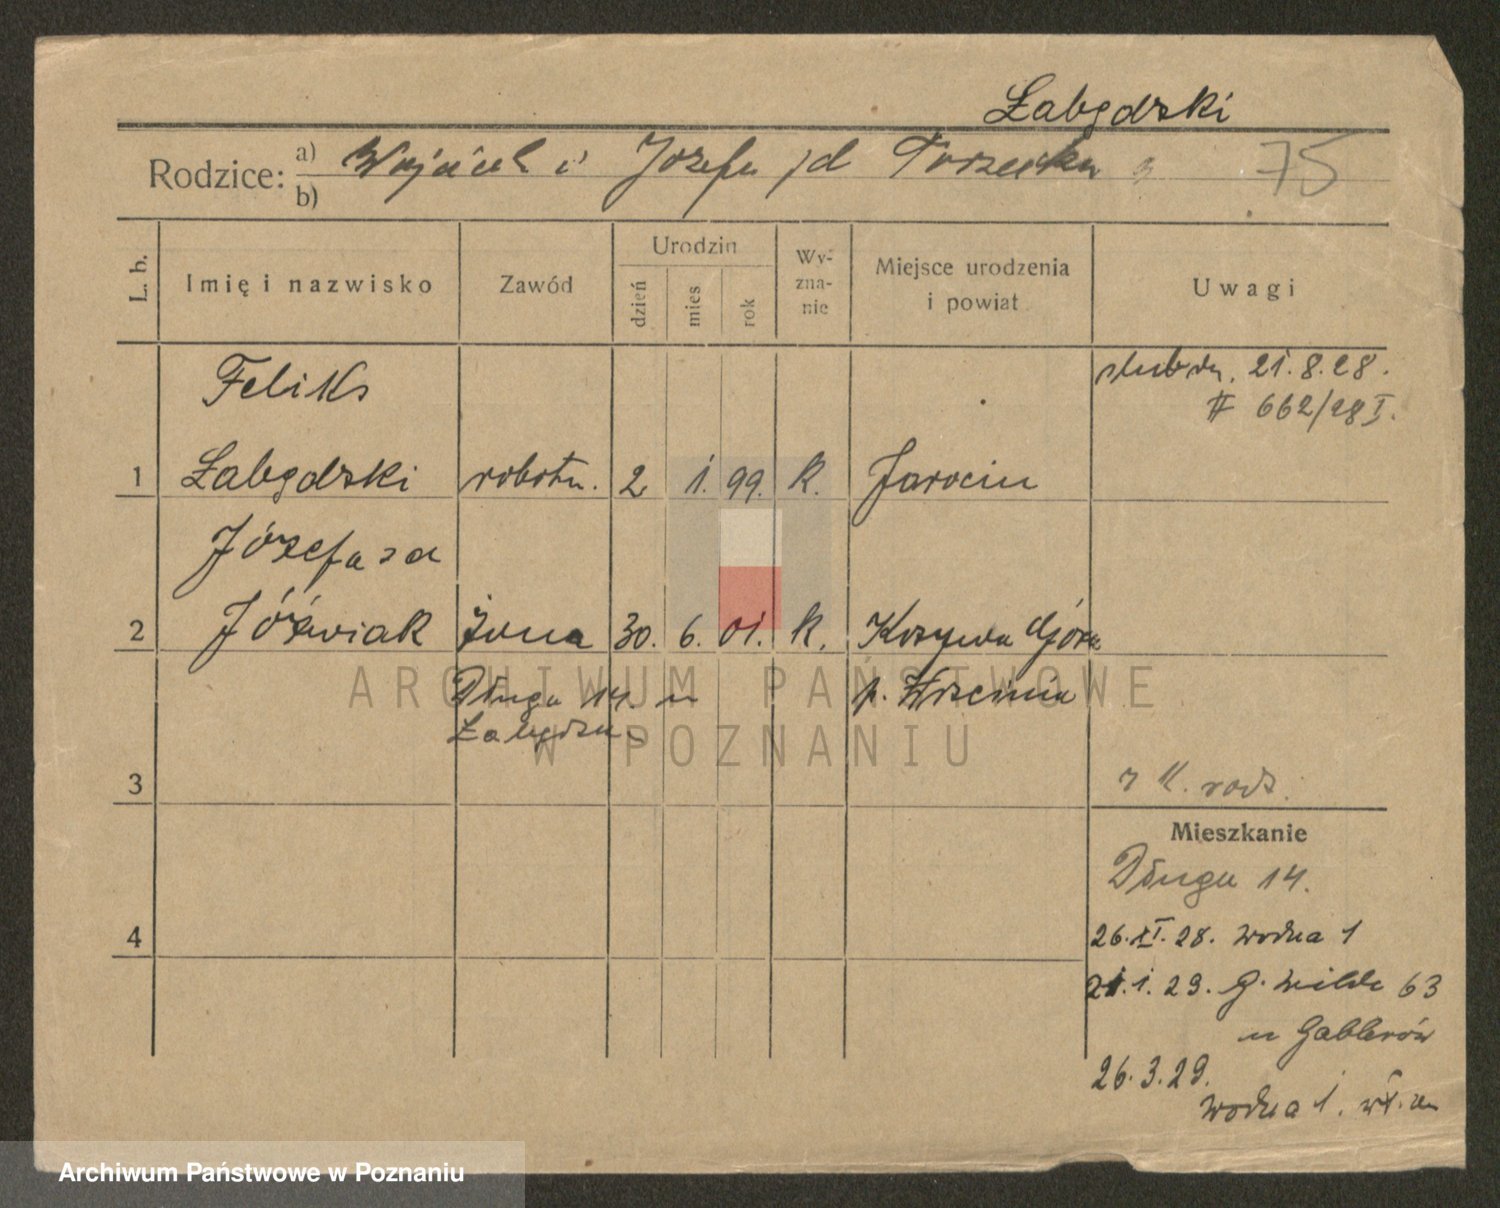 Łabędzki
Rodzice: a) Wojciech i Józefa
b)
75
L. b.
Imię i nazwisko
Zawód
Urodzin
dzień
mies
rok
Wy-
zna-
nie
Miejsce urodzenia
i powiat
Uwagi
Feliks
ślub dn. 21.8.28.
# 662/28 I.
1 Łabędzki robotn. 2 1. 99. k. Jarocin
Józefa za
2 Jóźwiak żona 30. 6. 01. k. Góra
Długa 14. u p. Września
3
z k. rodz.
Mieszkanie
Długa 14.
4
26.XI.28. Wodna 1
21.1.29. G. Wilda 63
u Gablerów
26.3.29.
Wodna 1. wł. m
ARCHIWUM PAŃSTWOWE
W POZNANIU
Archiwum Państwowe w Poznaniu